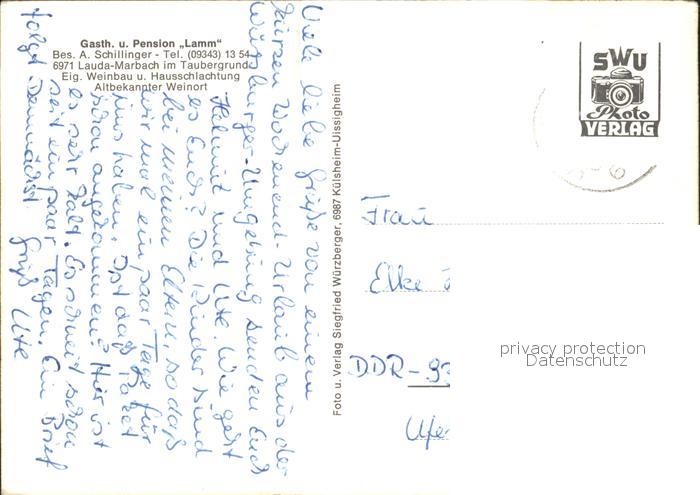 Gasth. u. Pension „Lamm"
Bes. A. Schillinger - Tel. (09343) 13 54
6971 Lauda-Marbach im Taubergrund
Eig. Weinbau u. Hausschlachtung
Altbekannter Weinort
Viele liebe Grüße von einem
kurzen Wochenend-Urlaub aus der
Würzburger-Umgebung senden Euch
Helmut und Ute. Wie geht
es Euch? Die Kinder sind
bei meinen Eltern, so daß
wir mal ein paar Tage für
uns haben. Ist das Paket
schon angekommen? Hier ist
es sehr kalt. Es schneit schon
seit ein paar Tagen. Ein Brief
folgt demnächst
Gruß Ute
Foto u. Verlag Siegfried Würzberger, 6987 Külsheim-Uissigheim
SWU
Photo
VERLAG
Frau
Elke
DDR-93
privacy protection
Datenschutz